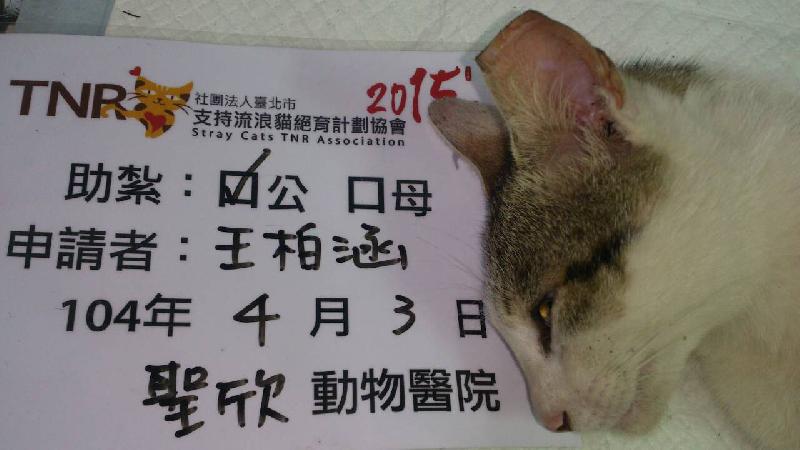 TNR 社團法人臺北市 2015
支持流浪貓絕育計劃協會
Stray Cats TNR Association
助紮：☑公 口母
申請者：王柏涵
104年 4 月 3 日
聖欣 動物醫院